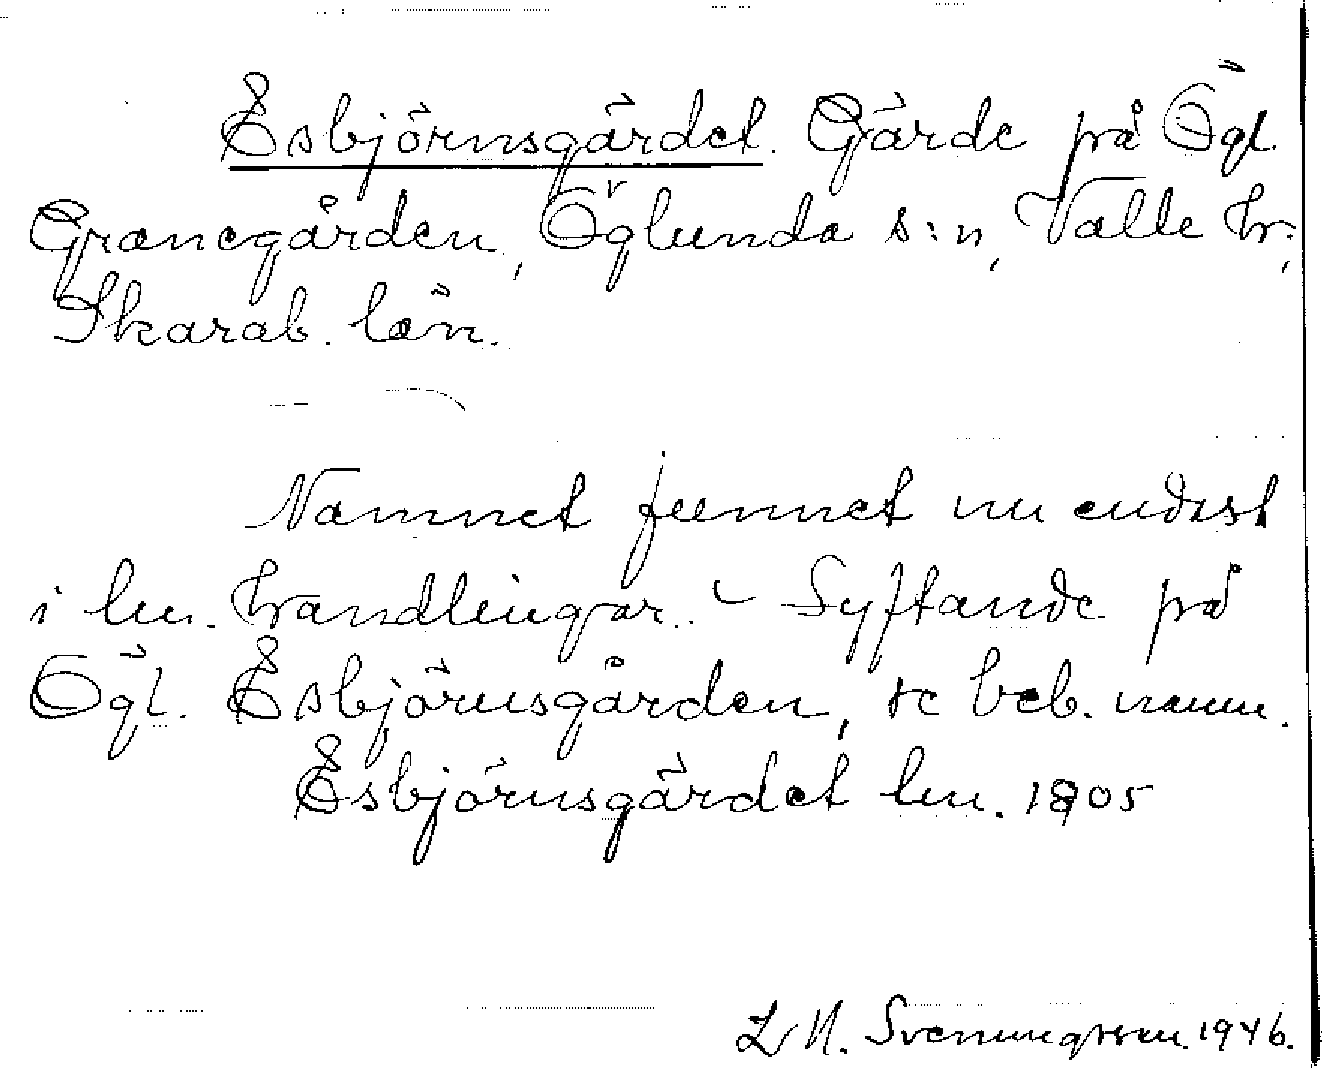 Esbjörnsgärdet. Gärde på Ögl.
Granegården, Öglunda s:n, Valle hr.,
Skarab. län.
Namnet funnet nu endast
i lm. handlingar. - Syftande på
Ögl. Esbjörnsgården, se beb. namn.
Esbjörnsgärdet lm. 1805
L N. Svenungsson. 1946.